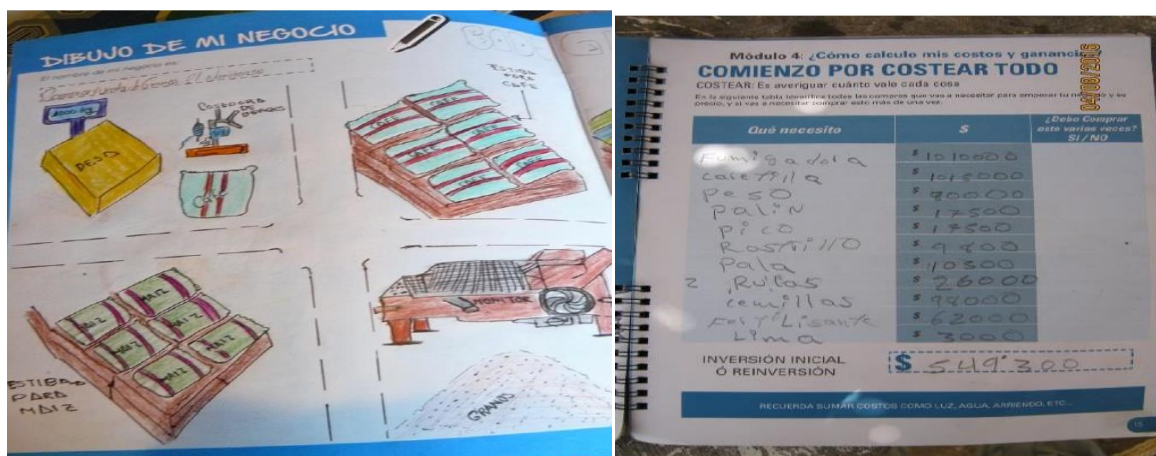 DIBUJO DE MI NEGOCIO
El nombre de mi negocio es:
1000 Kg
PESO
COSEDORA
DE
ESTIBA
PARA
CAFE
CAFE
CAFE
CAFE
CAFE
CAFE
CAFE
MAIZ
MAIZ
MAIZ
MAIZ
MAIZ
MAIZ
ESTIBA
PARA
MAIZ
MONITOR
GRANO
Módulo 4: ¿Cómo calculo mis costos y ganancias
COMIENZO POR COSTEAR TODO
COSTEAR: Es averiguar cuánto vale cada cosa
En la siguiente tabla identifica todas las compras que vas a necesitar para empezar tu negocio y su
precio, y si vas a necesitar comprar esto más de una vez.
04/08/2016
Qué necesito $ ¿Debo Comprar
esto varias veces?
SI / NO
Fumigadola $
caretilla $
Peso $
Palin $ 17500
Pico $ 17500
Rastrillo $ 9800
Pala $ 10300
2 Rulas $ 26000
cemillas $ 98000
Fertilisante $ 62000
Lima $ 3000
INVERSIÓN INICIAL
Ó REINVERSIÓN $ 549.300
RECUERDA SUMAR COSTOS COMO LUZ, AGUA, ARRIENDO, ETC...
15